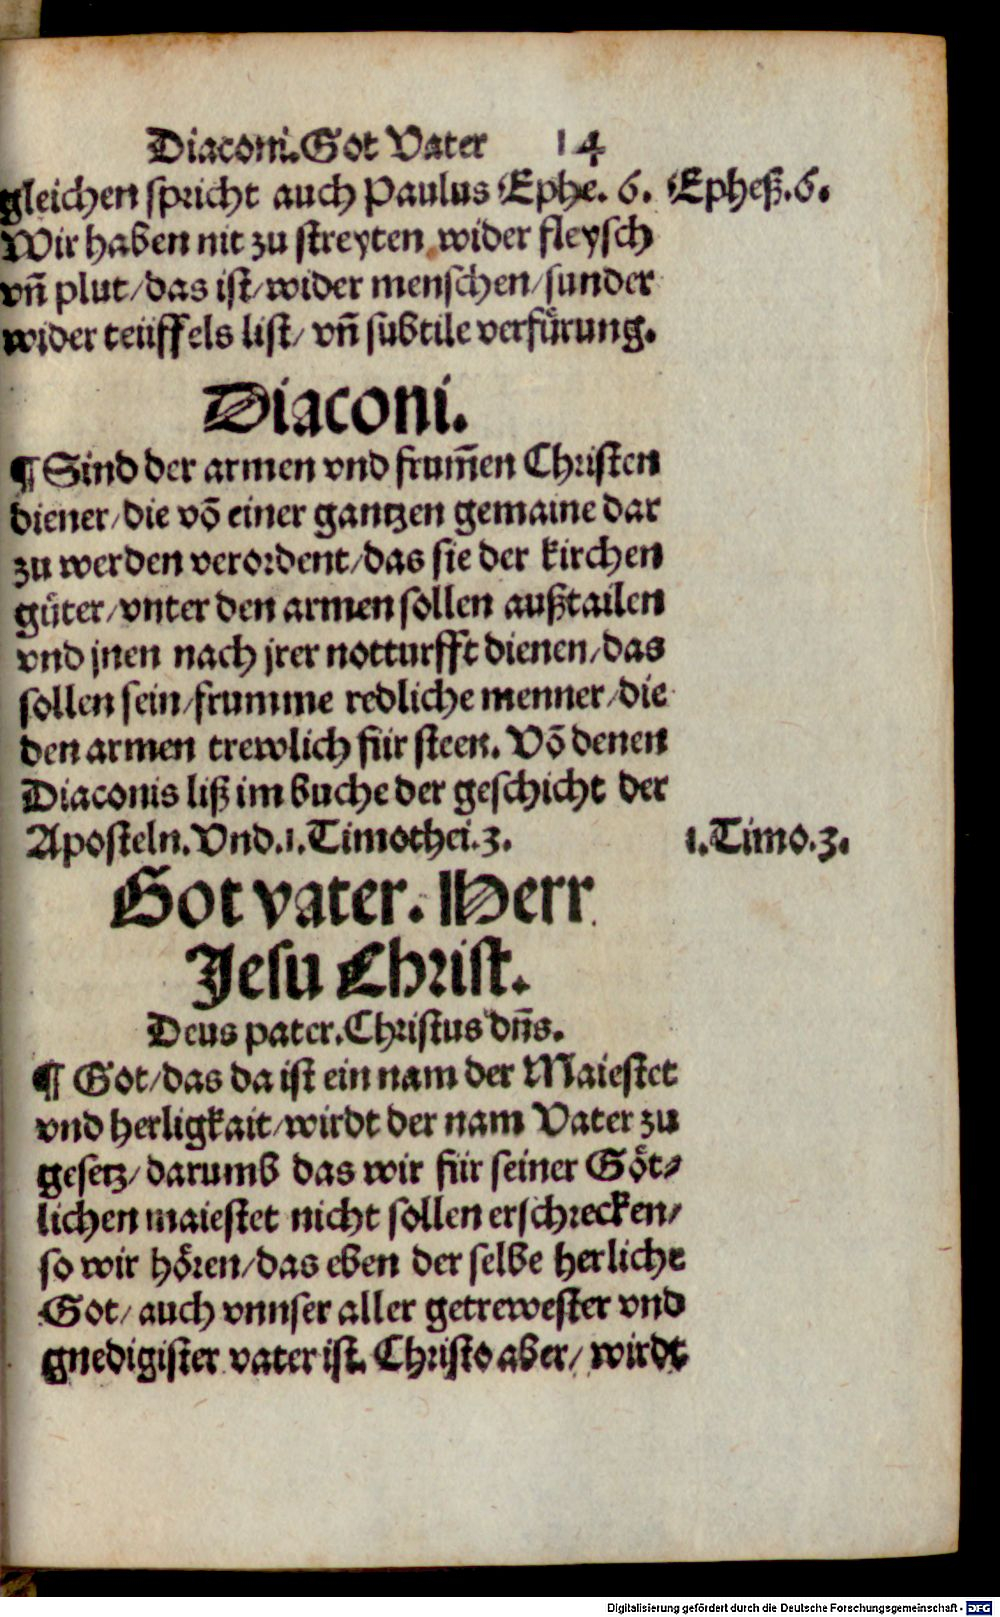 Diaconi. Got Vater 14
gleichen spricht auch Paulus Ephe. 6. Epheß. 6.
Wir haben nit zu streyten wider fleysch
vñ plut/das ist/wider menschen/sunder
wider teüffels list/ vñ subtile verfürung.
Diaconi.
¶ Sind der armen vnd frum̃en Christen
diener/die võ einer gantzen gemaine dar
zu werden verordent/das sie der kirchen
güter/vnter den armen sollen außtailen
vnd jnen nach jrer notturfft dienen/das
sollen sein/frumme redliche menner/die
den armen trewlich für steen. Võ denen
Diaconis liß im buche der geschicht der
Aposteln. Vnd. 1. Timothei. 3. 1. Timo. 3.
Got vater. Herr
Jesu Christ.
Deus pater. Christus dñs.
¶ Got/das da ist ein nam der Maiestet
vnd herligkait/wirdt der nam Vater zu
gesetz/darumb das wir für seiner Göt⸗
lichen maiestet nicht sollen erschrecken/
so wir hören/das eben der selbe herliche
Got/auch vnnser aller getrewester vnd
gnedigister vater ist. Christo aber/ wirdt
Digitalisierung gefördert durch die Deutsche Forschungsgemeinschaft - DFG